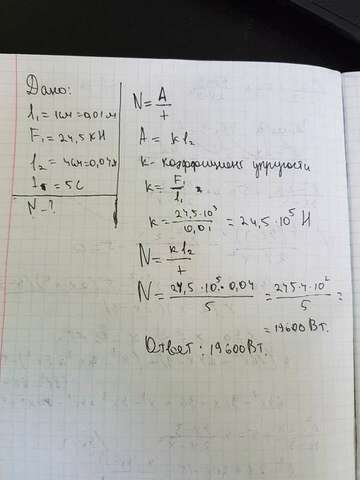 Дано:
l₁ = 1см = 0,01м
F₁ = 24,5 кН
l₂ = 4см = 0,04м
t = 5с
N - ?
N = A/t
A = kl₂
k - коэффициент упругости
k = F₁/l₁
k = 24,5·10³/0,01 = 24,5·10⁵ Н
N = kl₂/t
N = 24,5·10⁵·0,04/5 = 245·4·10²/5 =
= 19600 Вт.
Ответ: 19600 Вт.